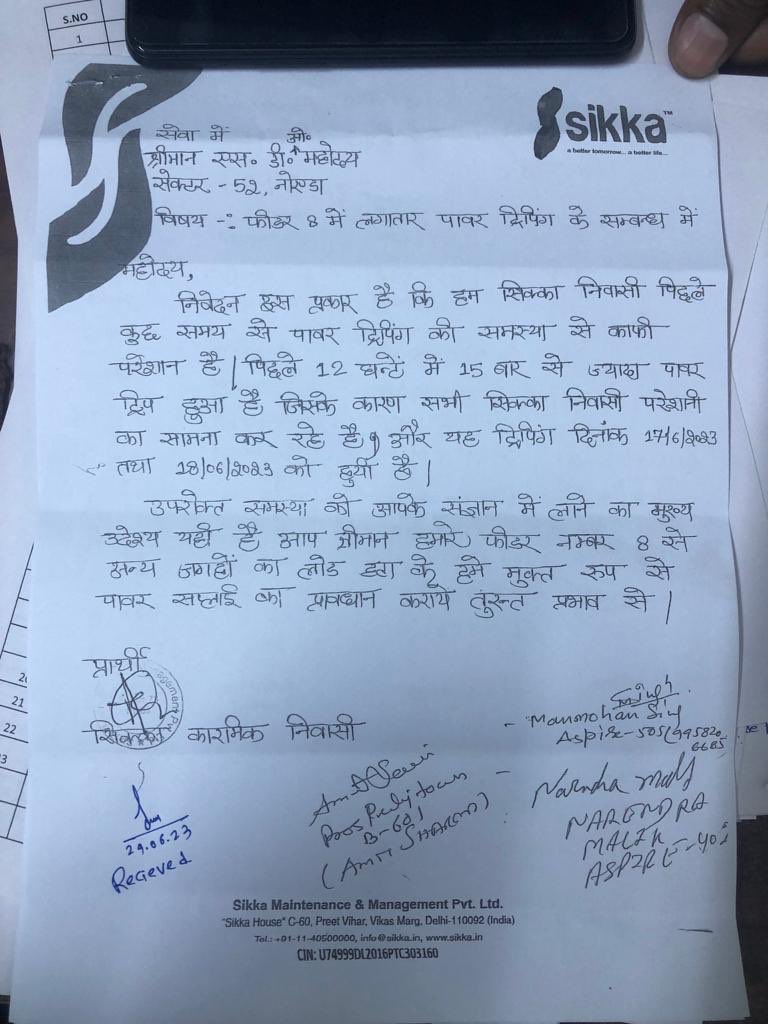 S.NO
1
sikka™
a better tomorrow... a better life...
सेवा में
श्रीमान एस. डी. ओ. महोदय
सेक्टर - 52, नोएडा
विषय -: फीडर 8 में लगातार पावर ट्रिपिंग के सम्बन्ध में
महोदय,
निवेदन इस प्रकार है कि हम सिक्का निवासी पिछले
कुछ समय से पावर ट्रिपिंग की समस्या से काफी
परेशान है | पिछले 12 घन्टें में 15 बार से ज्यादा पावर
ट्रिप हुआ है जिसके कारण सभी सिक्का निवासी परेशानी
का सामना कर रहे है, और यह ट्रिपिंग दिनांक 17/6/2023
तथा 18/06/2023 को हुयी है |
उपरोक्त समस्या को आपके संज्ञान में लाने का मुख्य
उद्देश्य यही है आप श्रीमान हमारे फीडर नम्बर 8 से
अन्य जगहों का लोड हटा के हमे मुक्त रुप से
पावर सप्लाई का प्रावधान कराये तुरन्त प्रभाव से |
प्रार्थी
सिक्का कारमिक निवासी
Singh
- Manmohan Singh
Aspire-505 (995820
6685
29.06.23
Recieved
B-601
(AMIT SHARMA)
Narendra Malik
NARENDRA
MALIK
ASPIRE-401
21
22
Sikka Maintenance & Management Pvt. Ltd.
"Sikka House" C-60, Preet Vihar, Vikas Marg, Delhi-110092 (India)
Tel.: +91-11-40500000, info@sikka.in, www.sikka.in
CIN: U74999DL2016PTC303160